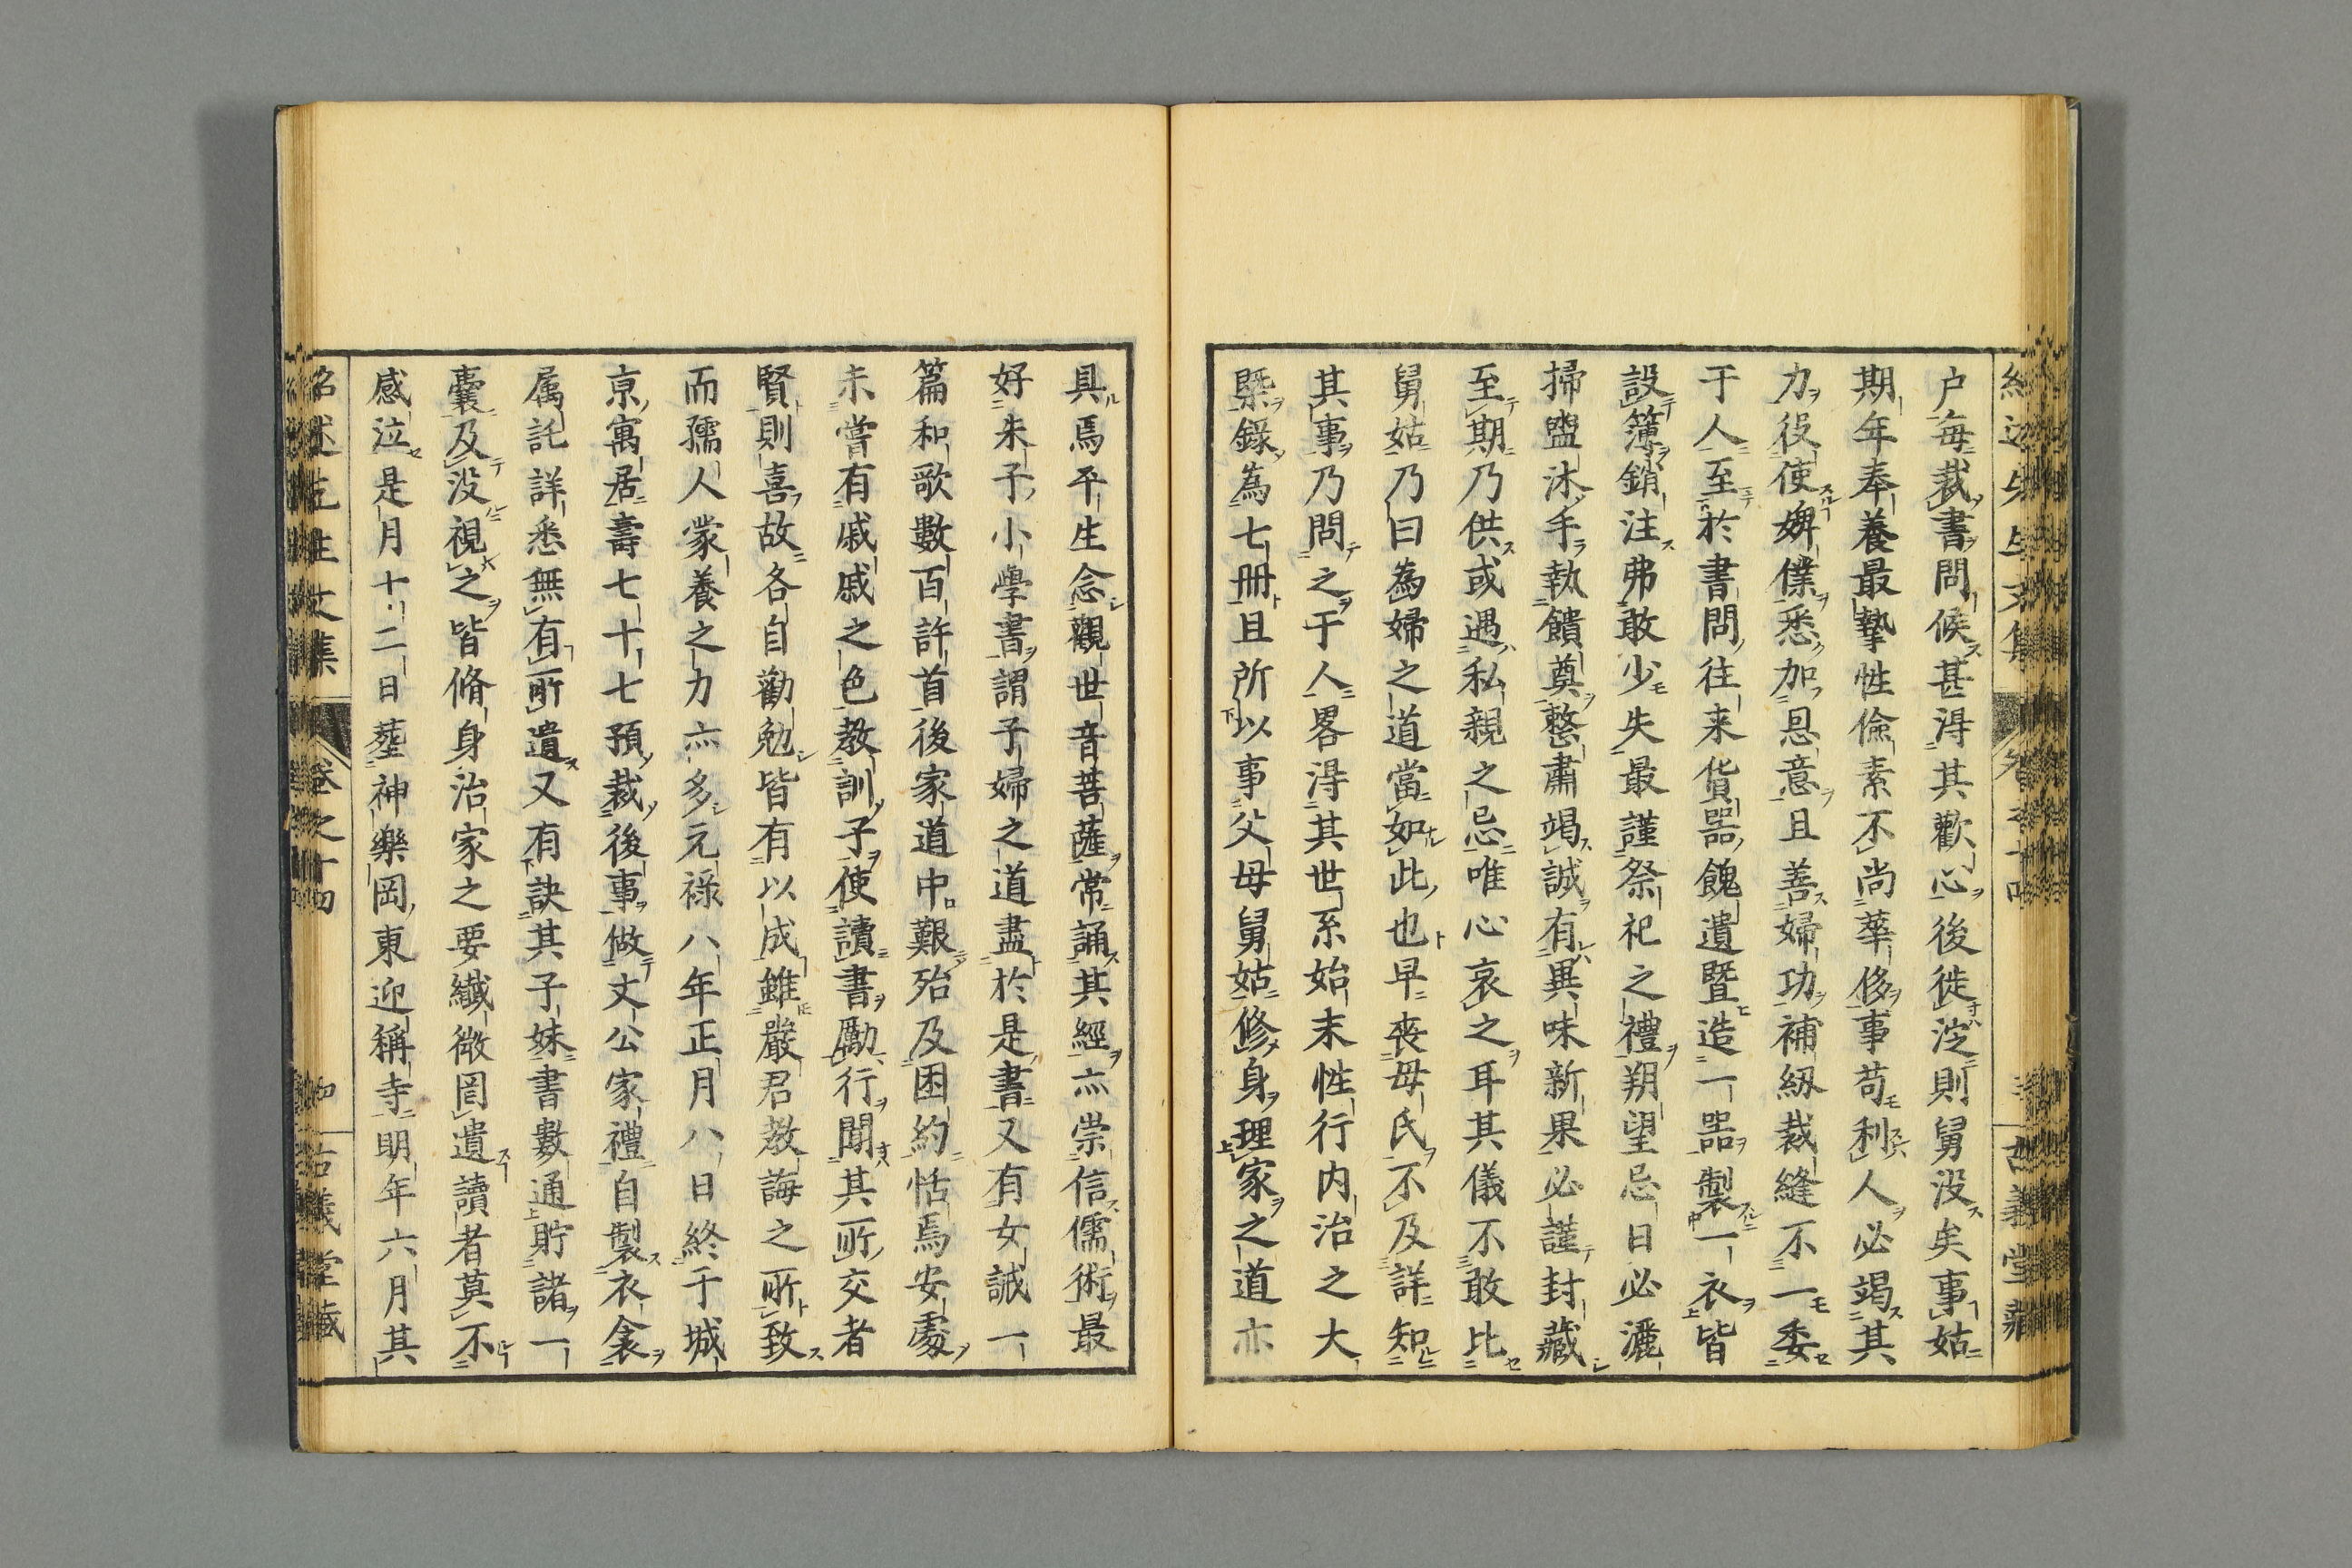 户毎裁書問候甚得其歡心後徙淀則舅没矣事姑
期年奉養最摯性儉素不尚華侈事苟利人必竭其
力役使婢僕悉加恩意且善婦功補紉裁縫不一委
于人至於書問往来貨噐餽遺曁造一噐製一衣皆
設簿銷注弗敢少失最謹祭祀之禮朔望忌日必灑
掃盥沐手執饋奠整肅竭誠有異味新果必謹封藏
至期乃供或遇私親之忌唯心哀之耳其儀不敢比
舅姑乃曰為婦之道當如此也早喪母氏不及詳知
其事乃問之于人畧得其世系始末性行内治之大
槩錄為七册且所以事父母舅姑修身理家之道亦
具焉平生念觀世音菩薩常誦其經亦崇信儒術最
好朱子小學書謂子婦之道盡於是書又有女誡一
篇和歌數百許首後家道中艱殆及困約恬焉安處
未嘗有戚戚之色教訓子使讀書勵行聞其所交者
賢則喜故各自勸勉皆有以成雖嚴君教誨之所致
而孺人蒙養之力亦多元祿八年正月八日終于城
京寓居壽七十七預裁後事倣文公家禮自製衣衾
属託詳悉無有所遺又有訣其子妹書數通貯諸一
囊及没視之皆脩身治家之要纎微罔遺讀者莫不
感泣是月十二日塟神樂岡東迎稱寺明年六月其
紹述先生文集 卷之十四 四 古義堂藏